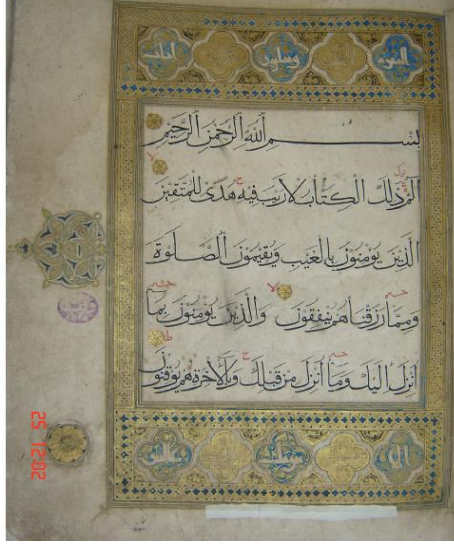 بِسْمِ ٱللَّهِ ٱلرَّحْمٰنِ ٱلرَّحِيمِ
الٓمٓ ذَٰلِكَ الْكِتَابُ لَا رَيْبَ فِيهِ هُدًى لِلْمُتَّقِينَ
الَّذِينَ يُؤْمِنُونَ بِالْغَيْبِ وَيُقِيمُونَ الصَّلٰوةَ
وَمِمَّا رَزَقْنَاهُمْ يُنْفِقُونَ وَالَّذِينَ يُؤْمِنُونَ بِمَا
أُنْزِلَ إِلَيْكَ وَمَا أُنْزِلَ مِنْ قَبْلِكَ وَبِالْآخِرَةِ هُمْ يُوقِنُونَ